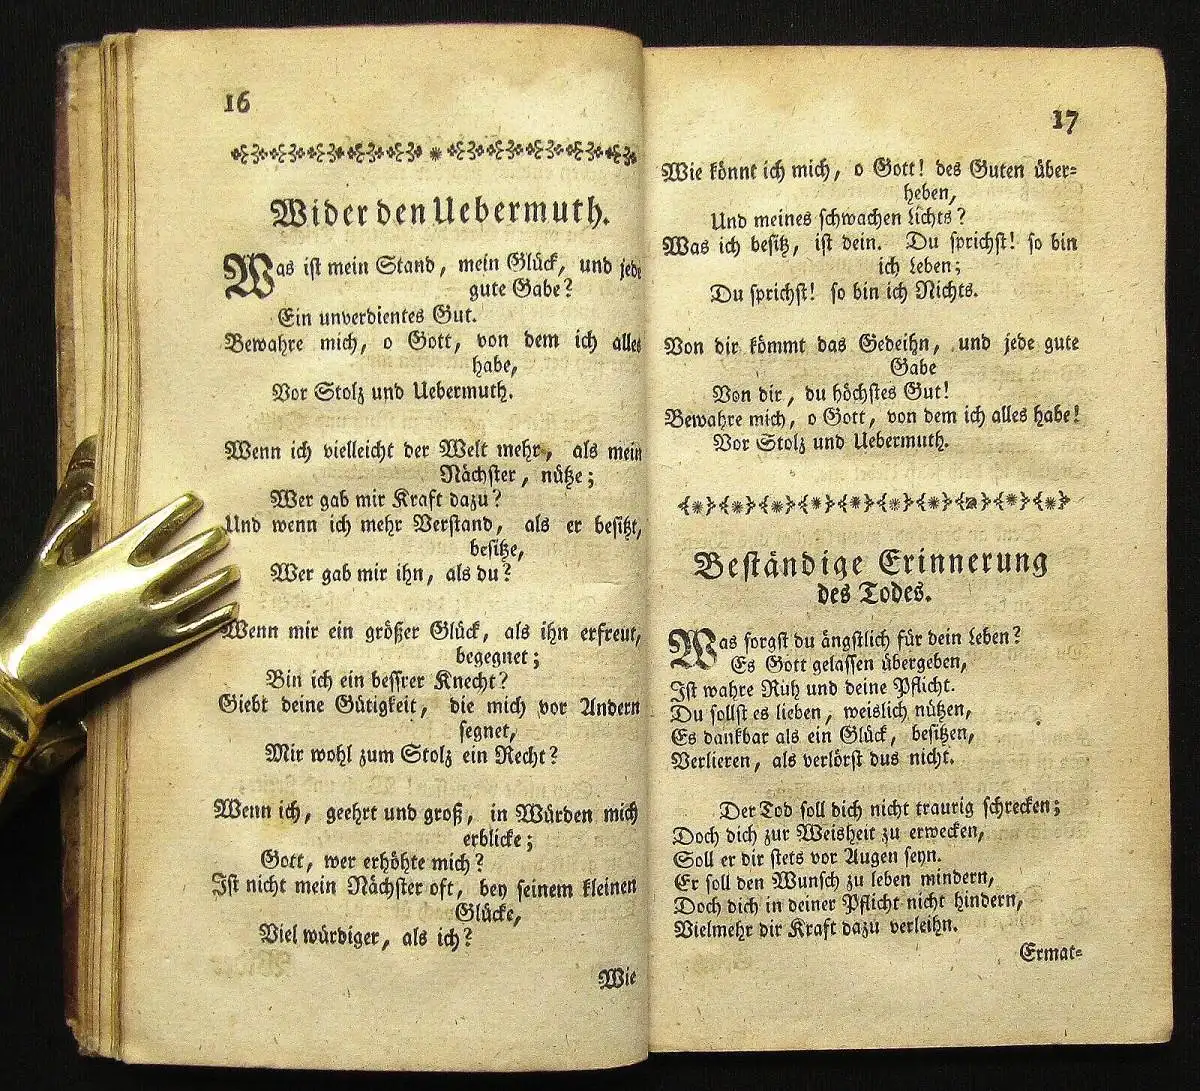 16
Wider den Uebermuth.
Was ist mein Stand, mein Glück, und jede
gute Gabe?
Ein unverdientes Gut.
Bewahre mich, o Gott, von dem ich alles
habe,
Vor Stolz und Uebermuth.
Wenn ich vielleicht der Welt mehr, als mein
Nächster, nütze;
Wer gab mir Kraft dazu?
Und wenn ich mehr Verstand, als er besitzt,
besitze,
Wer gab mir ihn, als du?
Wenn mir ein größer Glück, als ihn erfreut,
begegnet;
Bin ich ein bessrer Knecht?
Giebt deine Gütigkeit, die mich vor Andern
segnet,
Mir wohl zum Stolz ein Recht?
Wenn ich, geehrt und groß, in Würden mich
erblicke;
Gott, wer erhöhte mich?
Ist nicht mein Nächster oft, bey seinem kleinen
Glücke,
Viel würdiger, als ich?
Wie
17
Wie könnt ich mich, o Gott! des Guten über-
heben,
Und meines schwachen Lichts?
Was ich besitz, ist dein. Du sprichst! so bin
ich Leben;
Du sprichst! so bin ich Nichts.
Von dir kömmt das Gedeihn, und jede gute
Gabe
Von dir, du höchstes Gut!
Bewahre mich, o Gott, von dem ich alles habe!
Vor Stolz und Uebermuth.
Beständige Erinnerung
des Todes.
Was sorgst du ängstlich für dein Leben?
Es Gott gelassen übergeben,
Ist wahre Ruh und deine Pflicht.
Du sollst es lieben, weislich nützen,
Es dankbar als ein Glück, besitzen,
Verlieren, als verlörst dus nicht.
Der Tod soll dich nicht traurig schrecken;
Doch dich zur Weisheit zu erwecken,
Soll er dir stets vor Augen seyn.
Er soll den Wunsch zu leben mindern,
Doch dich in deiner Pflicht nicht hindern,
Vielmehr dir Kraft dazu verleihn.
Ermat-